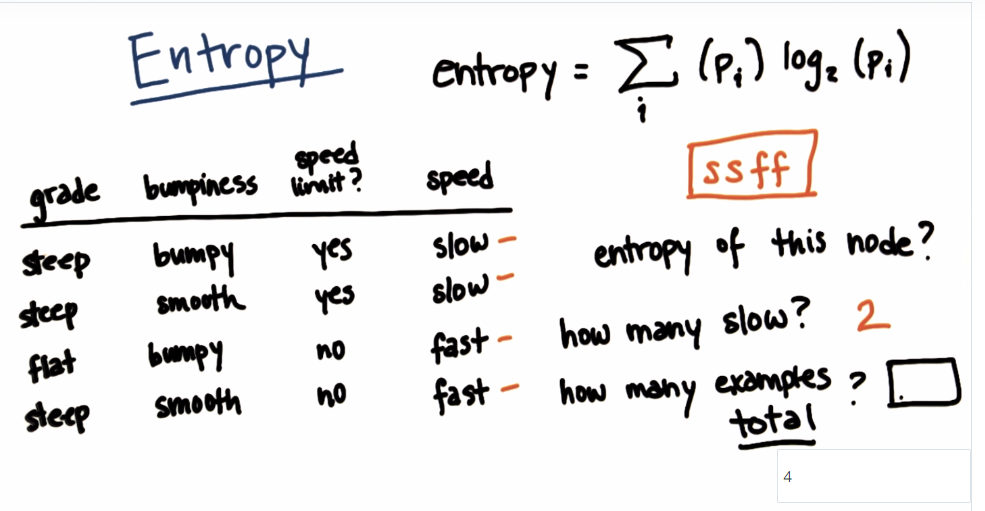 Entropy
entropy = ∑ᵢ (pᵢ) log₂ (pᵢ)
ssff
grade bumpiness speed limit? speed
steep bumpy yes slow -
steep smooth yes slow -
flat bumpy no fast -
steep smooth no fast -
entropy of this node?
how many slow? 2
how many examples total?
4